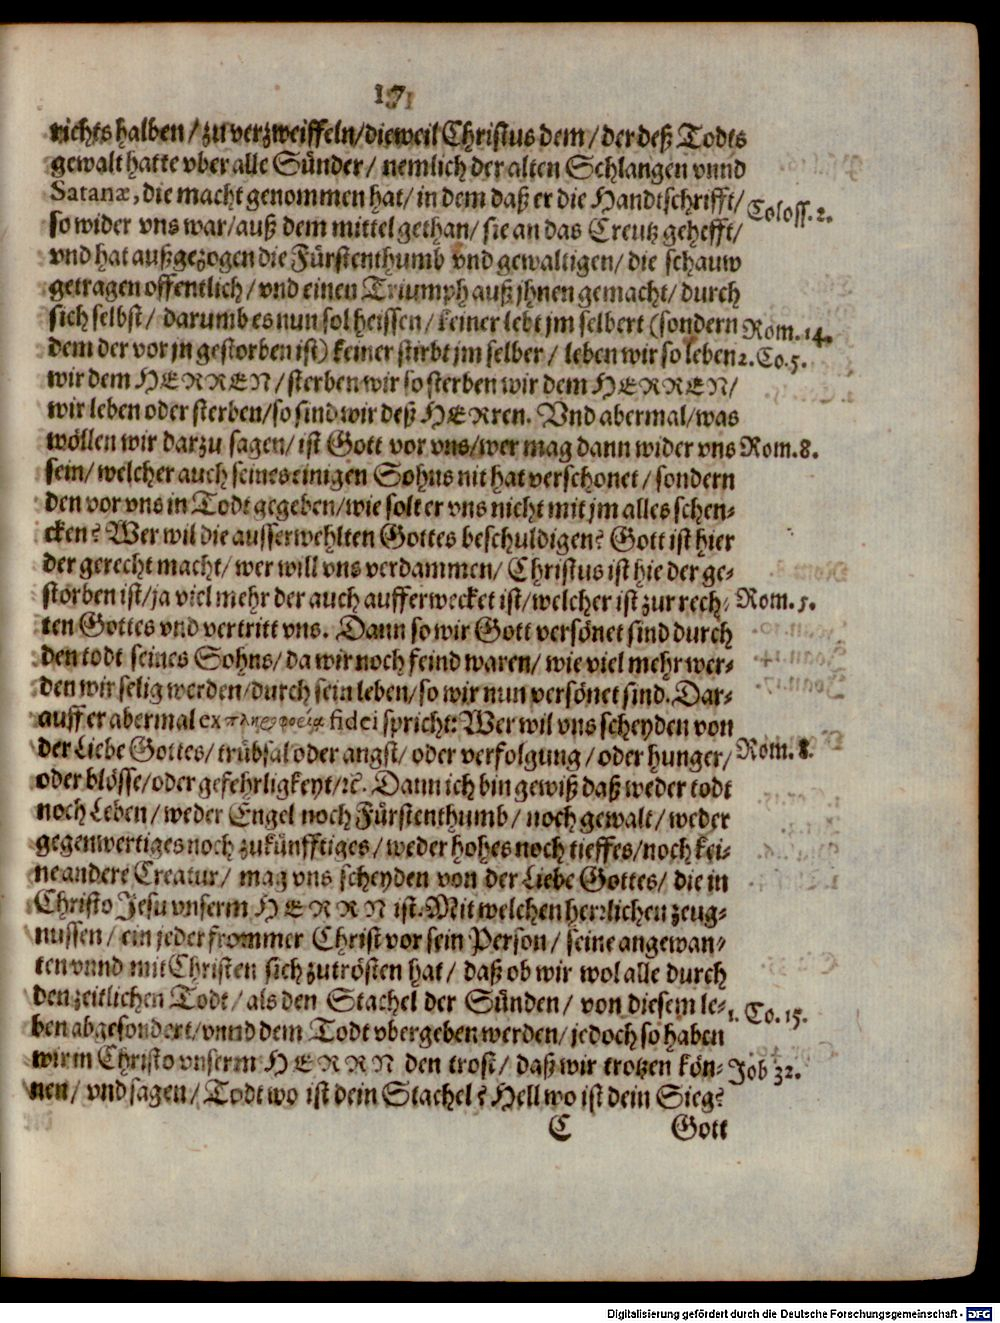 17
richts halben / zu verzweiffeln / dieweil Christus dem / der deß Todts
gewalt hatte vber alle Sünder / nemlich der alten Schlangen vnnd
Satanæ, die macht genommen hat / in dem daß er die Handtschrifft /
Coloss. 2.
so wider vns war / auß dem mittel gethan / sie an das Creutz gehefft /
vnd hat außgezogen die Fürstenthumb vnd gewaltigen / die schauw
getragen offentlich / vnd einen Triumph auß jhnen gemacht / durch
sich selbst / darumb es nun sol heissen / keiner lebt jm selbert (sondern
Rom. 14.
dem der vor jn gestorben ist) keiner stirbt jm selber / leben wir so leben
2. Co. 5.
wir dem HERREN / sterben wir so sterben wir dem HERREN /
wir leben oder sterben / so sind wir deß HERren. Vnd abermal / was
wöllen wir darzu sagen / ist Gott vor vns / wer mag dann wider vns
Rom. 8.
sein / welcher auch seines einigen Sohns nit hat verschonet / sondern
den vor vns in Todt gegeben / wie solt er vns nicht mit jm alles schen-
cken? Wer wil die ausserwehlten Gottes beschuldigen? Gott ist hier
der gerecht macht / wer will vns verdammen / Christus ist hie der ge-
storben ist / ja viel mehr der auch aufferwecket ist / welcher ist zur rech-
Rom. 5.
ten Gottes vnd vertritt vns. Dann so wir Gott versönet sind durch
den todt seines Sohns / da wir noch feind waren / wie viel mehr wer-
den wir selig werden / durch sein leben / so wir nun versönet sind. Dar-
auff er abermal ex πληροφορίᾳ fidei spricht: Wer wil vns scheyden von
der Liebe Gottes / trübsal oder angst / oder verfolgung / oder hunger /
Rom. 8.
oder blösse / oder gefehrligkeyt / ꝛc. Dann ich bin gewiß daß weder todt
noch Leben / weder Engel noch Fürstenthumb / noch gewalt / weder
gegenwertiges noch zukünfftiges / weder hohes noch tieffes / noch kei-
ne andere Creatur / mag vns scheyden von der Liebe Gottes / die in
Christo Jesu vnserm HERRN ist. Mit welchen herrlichen zeug-
nussen / ein jeder frommer Christ vor sein Person / seine angewan-
ten vnnd mit Christen sich zutrösten hat / daß ob wir wol alle durch
den zeitlichen Todt / als den Stachel der Sünden / von diesem le-
1. Co. 15.
ben abgesondert / vnnd dem Todt vbergeben werden / jedoch so haben
wir in Christo vnserm HERRN den trost / daß wir trotzen kön-
Job 32.
nen / vnd sagen / Todt wo ist dein Stachel? Hell wo ist dein Sieg?
C Gott
Digitalisierung gefördert durch die Deutsche Forschungsgemeinschaft - DFG